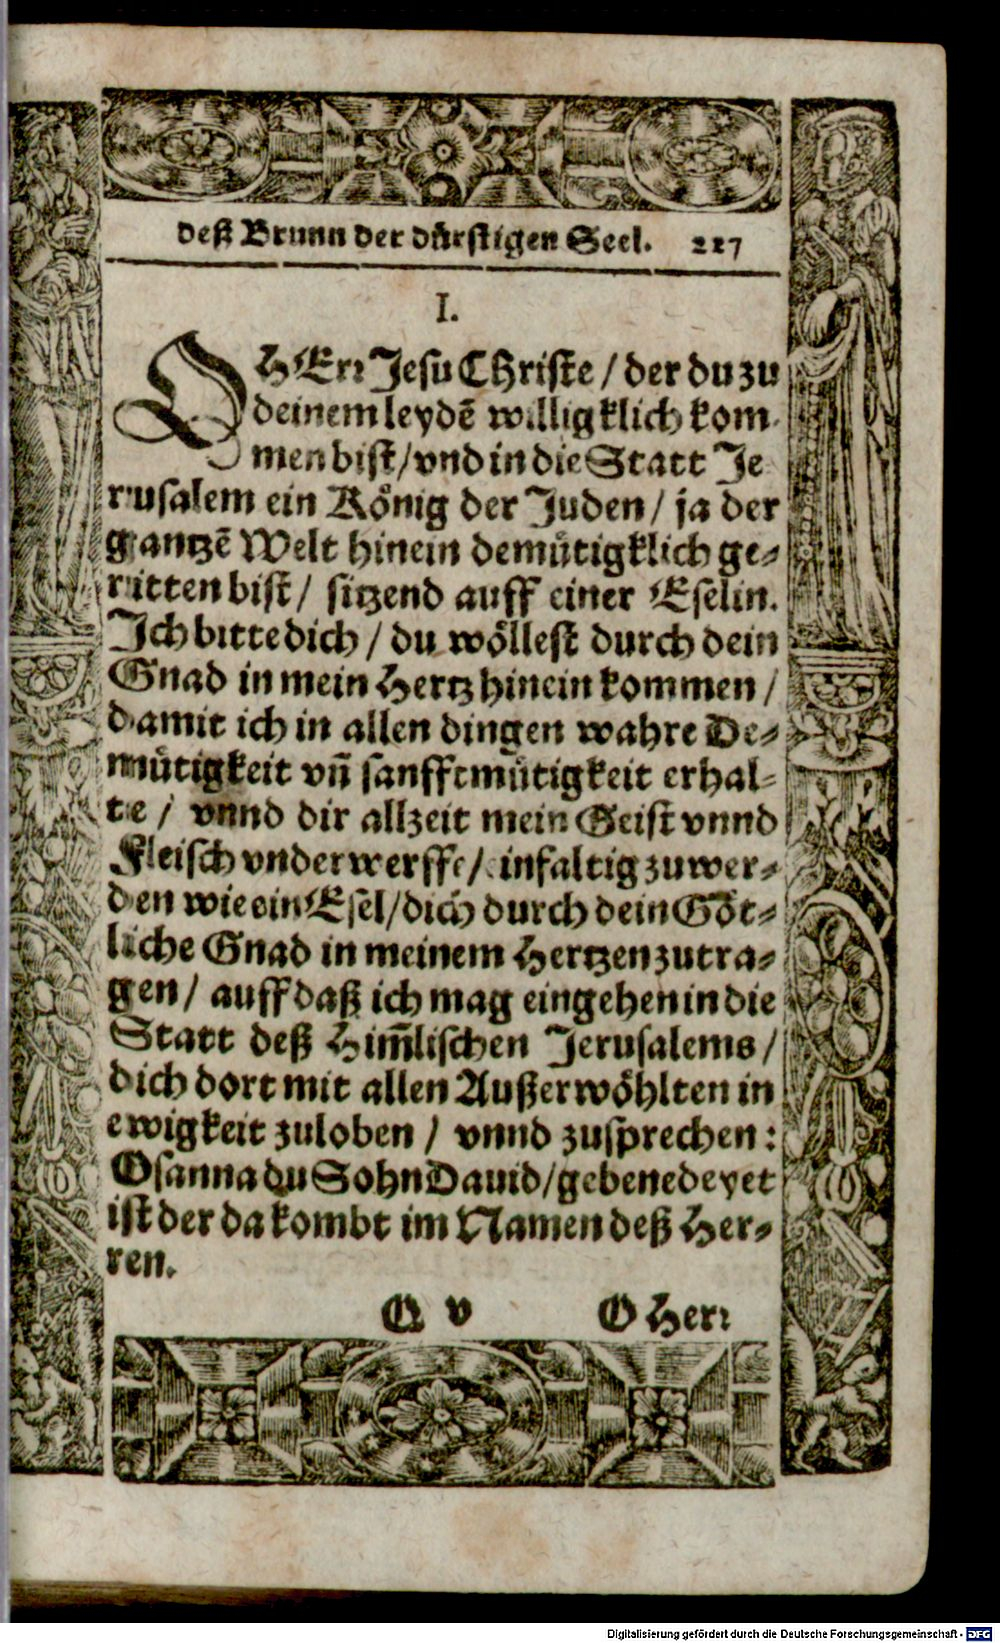 deß Brunn der dürstigen Seel. 217
I.
O HErr Jesu CHriste / der du zu
deinem leydē willigklich kom-
men bist / vnd in die Statt Je
rusalem ein König der Juden / ja der
gantzē Welt hinein demütigklich ge-
ritten bist / sitzend auff einer Eselin.
Ich bitte dich / du wöllest durch dein
Gnad in mein Hertz hinein kommen /
damit ich in allen dingen wahre De-
mütigkeit vn̄ sanfftmütigkeit erhal-
te / vnnd dir allzeit mein Geist vnnd
Fleisch vnderwerffe / einfaltig zuwer-
den wie ein Esel / dich durch dein Göt-
liche Gnad in meinem Hertzen zutra-
gen / auff daß ich mag eingehen in die
Statt deß Him̄lischen Jerusalems /
dich dort mit allen Außerwöhlten in
ewigkeit zuloben / vnnd zusprechen:
Osanna du Sohn Dauid / gebenedeyet
ist der da kombt im Namen deß Her-
ren.
Q v O Herr
Digitalisierung gefördert durch die Deutsche Forschungsgemeinschaft - DFG